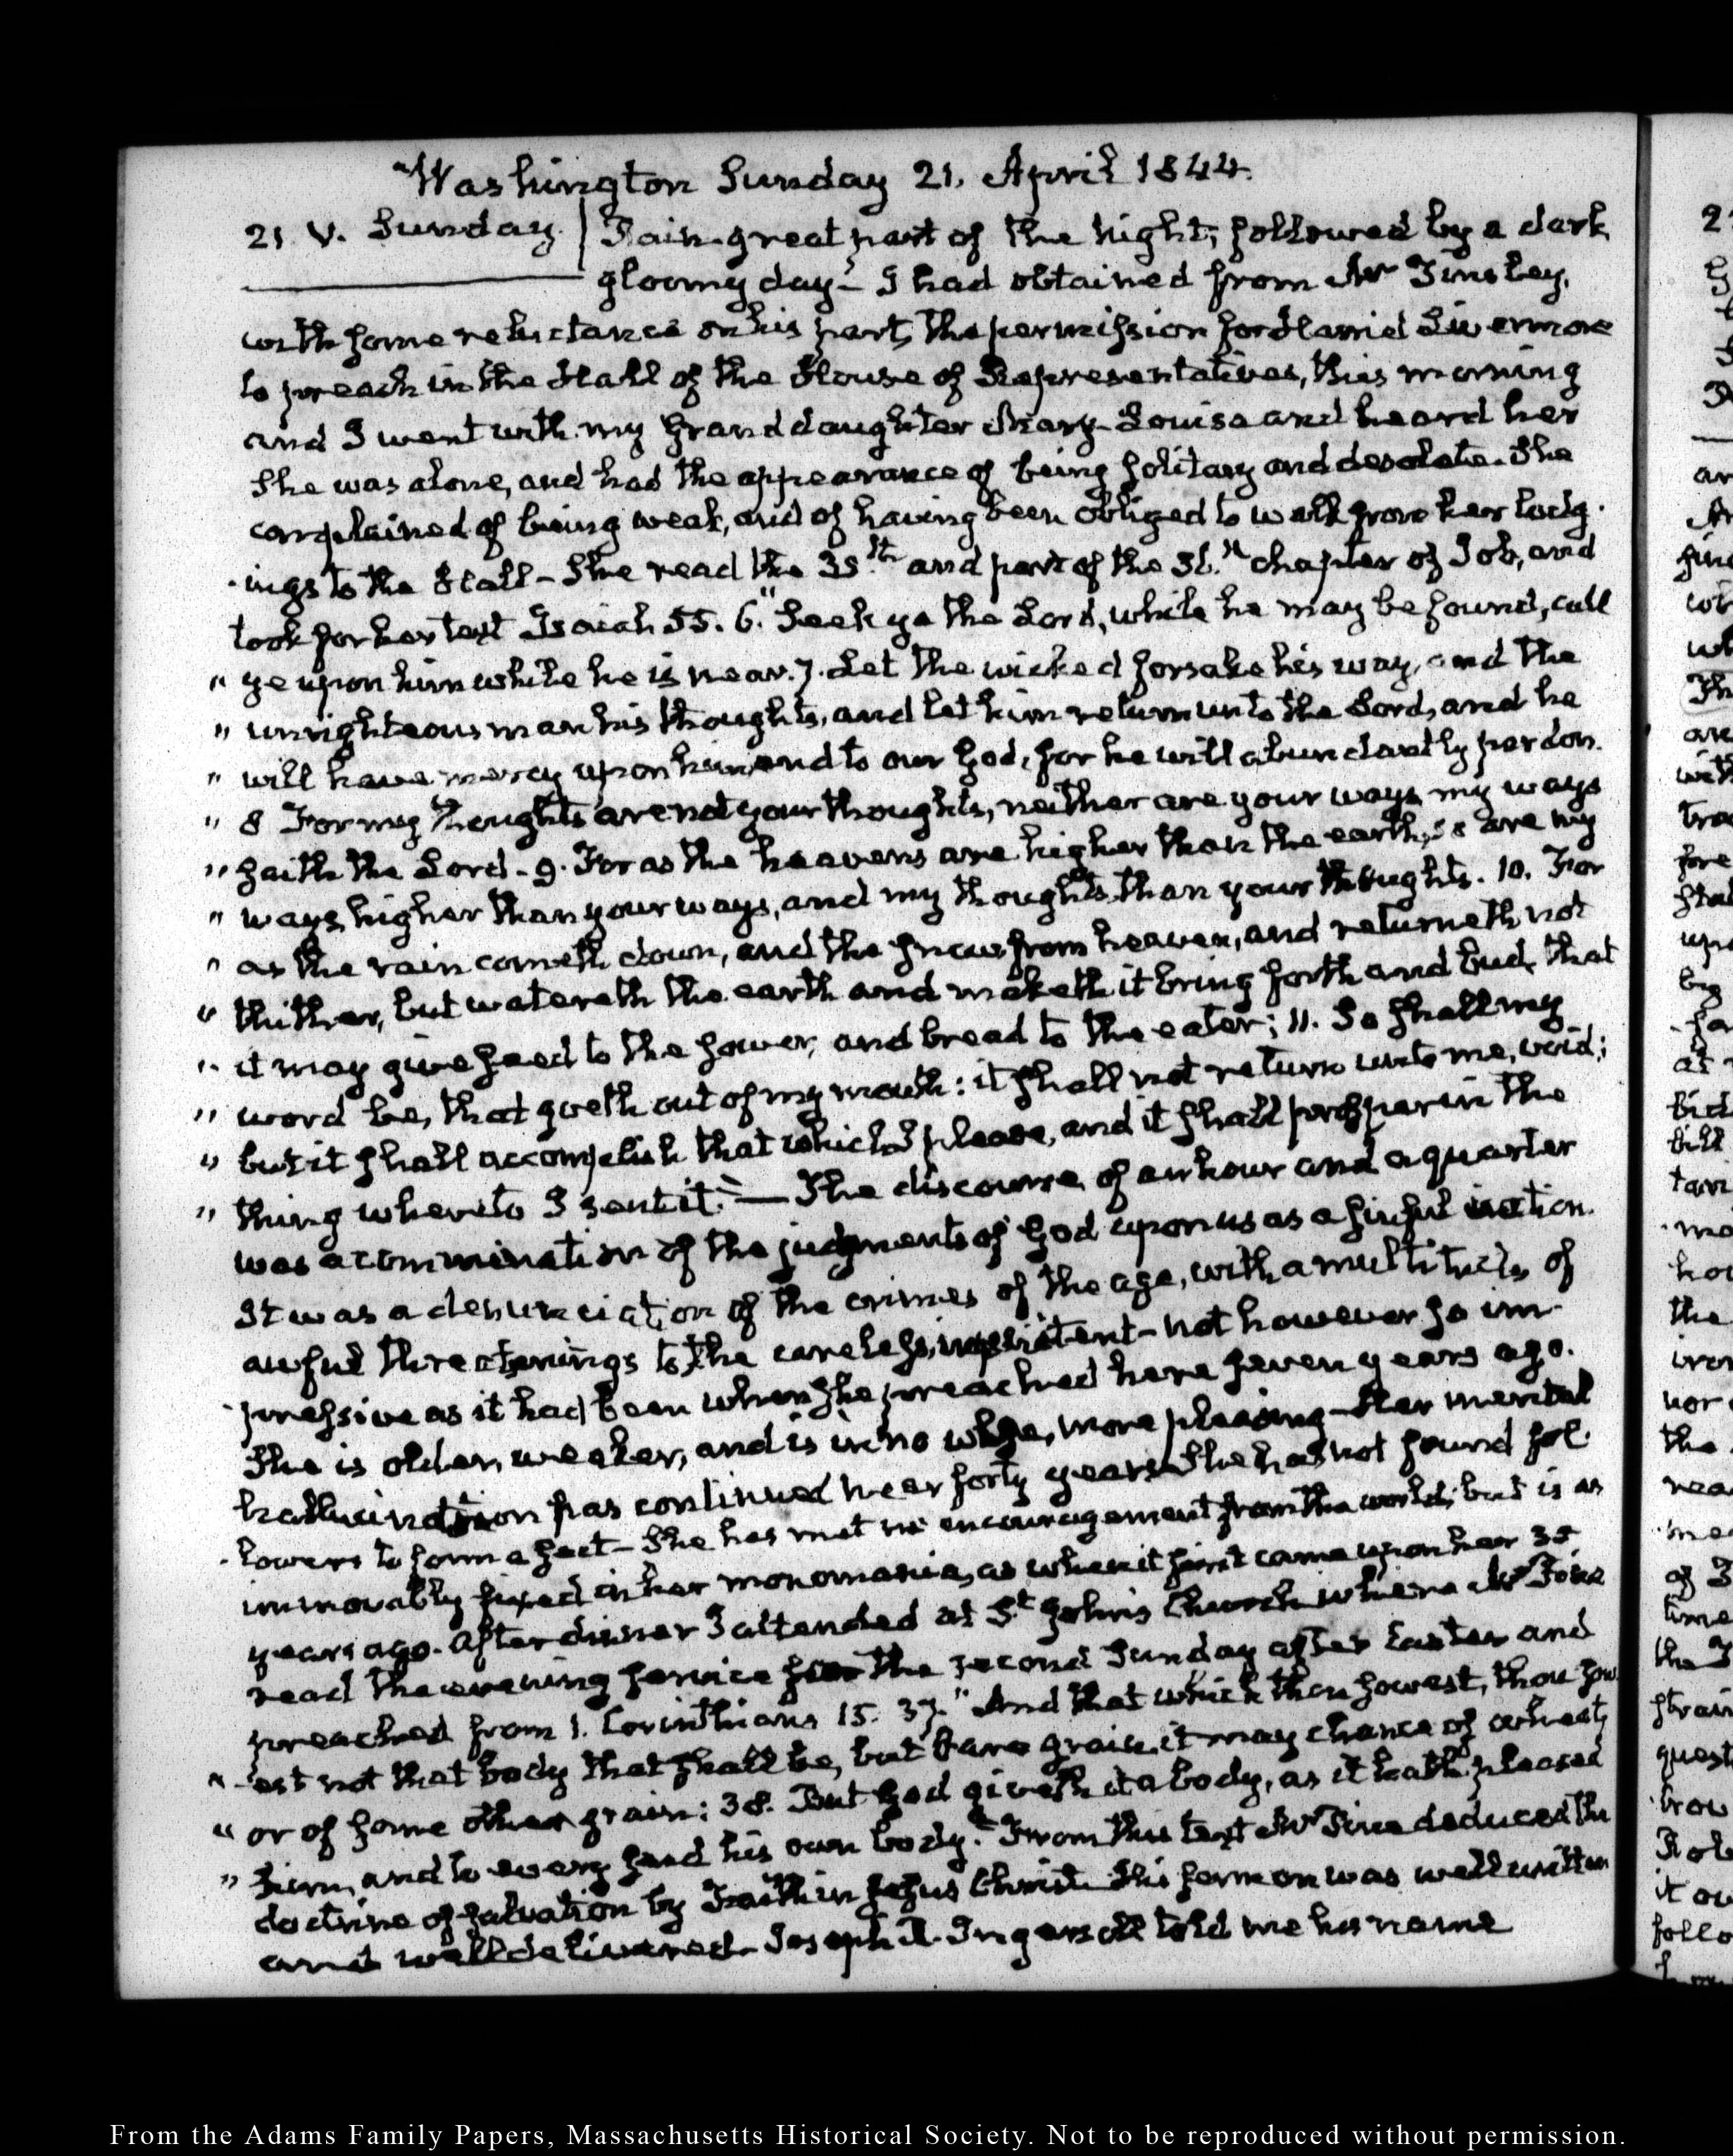 Washington Sunday 21. April 1844.
21. V. Sunday. Rain great part of the night, followed by a dark
gloomy day— I had obtained from Mr Tinsley,
with some reluctance on his part, the permission for Harriet Livermore
to preach in the Hall of the House of Representatives, this morning
and I went with my Granddaughter Mary-Louisa and heard her
She was alone, and had the appearance of being solitary and desolate. She
complained of being weak, and of having been obliged to walk from her lodg-
-ings to the Hall— She read the 35.th and part of the 36.th chapter of Job, and
took for her text Isaiah 55. 6. "Seek ye the Lord, while he may be found, call
" ye upon him while he is near. 7. Let the wicked forsake his way, and the
" unrighteous man his thoughts, and let him return unto the Lord, and he
" will have mercy upon him, and to our God, for he will abundantly pardon.
" 8 For my thoughts are not your thoughts, neither are your ways my ways
" saith the Lord— 9. For as the heavens are higher than the earth, so are my
" ways higher than your ways, and my thoughts than your thoughts. 10. For
" as the rain cometh down, and the snow from heaven, and returneth not
" thither, but watereth the earth and maketh it bring forth and bud, that
" it may give seed to the sower, and bread to the eater; 11. So shall my
" word be, that goeth out of my mouth: it shall not return unto me, void;
" but it shall accomplish that which I please, and it shall prosper in the
" thing whereto I sent it."— The discourse of an hour and a quarter
was a commination of the judgments of God upon us as a sinful nation.
It was a denunciation of the crimes of the age, with a multitude of
awful threatenings to the careless, impenitent— not however so im-
-pressive as it had been when she preached here seven years ago.
She is older, weaker, and is in no wise, more pleasing— Her mental
hallucination has continued near forty years She has not found fol-
-lowers to form a sect— She has met no encouragement from the world; but is as
immovably fixed in her monomania, as when it first came upon her 35
years ago. After dinner I attended at St. John's Church where Mr
read the evening service for the second Sunday after Easter and
preached from 1. Corinthians 15. 37. "And that which thou sowest, thou sow
" -est not that body that shall be, but bare grain, it may chance of wheat,
" or of some other grain: 38. But God giveth it a body, as it hath pleased
" him, and to every seed his own body." From this text Mr deduced the
doctrine of salvation by Faith in Jesus Christ— His sermon was well written
and well delivered— Joseph R. Ingersoll told me his name
From the Adams Family Papers, Massachusetts Historical Society. Not to be reproduced without permission.